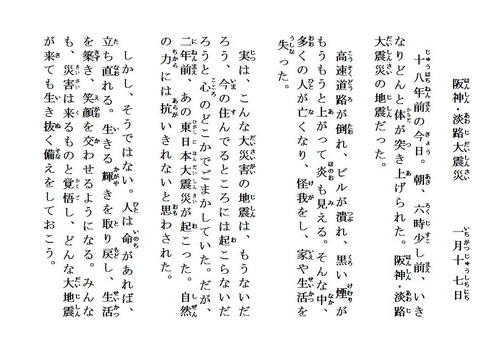 阪神・淡路大震災　一月十七日
十八年前の今日。朝、六時少し前、いき
なりどんと体が突き上げられた。阪神・淡路
大震災の地震だった。
高速道路が倒れ、ビルが潰れ、黒い煙が
もうもうと上がって炎も見える。そんな中、
多くの人が亡くなり、怪我をし、家や生活を
失った。
実は、こんな大災害の地震は、もうないだ
ろう、今の住んでるところには起こらないだ
ろうと心のどこかでごまかしていた。だが、
二年前、あの東日本大震災が起こった。自然
の力には抗いきれないと思わされた。
しかし、そうではない。人は命があれば、
立ち直れる。生きる輝きを取り戻し、生活
を築き、笑顔を交わせるようになる。みんな
も、災害は来るものと覚悟し、どんな大地震
が来ても生き抜く備えをしておこう。